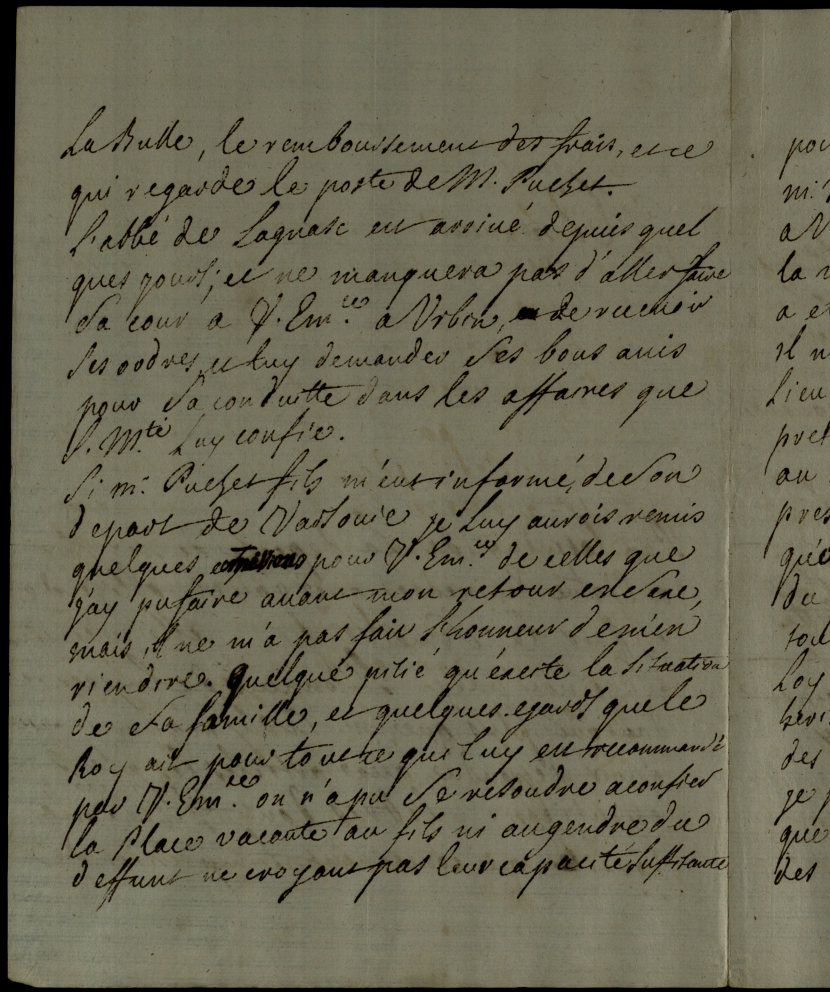 La Bulle, le remboursement des frais, et ce
qui regarde le poste de M. Puchet.
L'abbé de Lagnasc est arrivé depuis quel
ques jours; et ne manquera pas d'aller faire
Sa cour a V. Em.ce a Urbin, de recevoir
Ses ordres, et luy demander Ses bons avis
pour Sa conduitte dans les affaires que
S. M.té Luy confie.
Si mr. Puchet fils m'eut informé, de Son
depart de Varsovie je Luy aurois remis
quelques pour V. Em.ce de celles que
j'ay pu faire avant mon retour en Saxe,
mais, il ne m'a pas fait l'honneur de m'en
rien dire. Quelque pitié qu'éxcite la Situation
de Sa famille, et quelques egards que le
Roy ait pour tout ce qui luy est recommandé
par V. Em.ce on n'a pu Se resoudre a confier
la Place vacante au fils ni au gendre du
deffunt ne croyant pas leur capacité Suffisante
pou
m.
a V
la
a e
il n
Lieu
pret
au
pres
qu'
du
tou
Roy
heri
des
je p
que
des